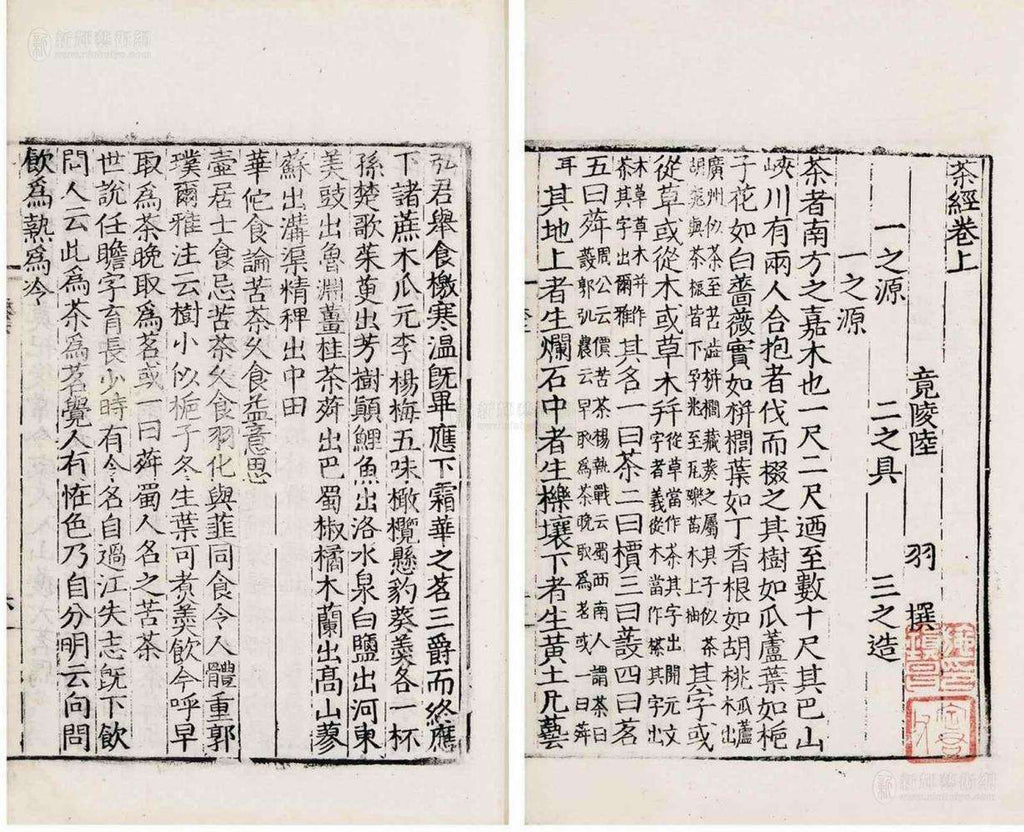 茶經卷上
竟陵陸 羽 撰
一之源 二之具 三之造
一之源
茶者南方之嘉木也一尺二尺迺至數十尺其巴山
峽川有兩人合抱者伐而掇之其樹如瓜蘆葉如梔
子花如白薔薇實如栟櫚葉如丁香根如胡桃瓜蘆木出
廣州似茶至苦澁栟櫚蒲葵之屬其子似茶胡桃與茶根皆下孕兆至瓦礫苗木上抽其字或
從草或從木或草木并從草當作茶其字出開元文字者義從木當作㭘其字出
本草草木并作茶其字出爾雅其名一曰茶二曰檟三曰蔎四曰茗
五曰荈周公云檟苦茶楊執戟云蜀西南人謂茶曰蔎郭弘農云早取為茶晚取為老或一曰荈
耳其地上者生爛石中者生櫟壤下者生黃土凡藝
弘君舉食檄寒溫既畢應下霜華之茗三爵而終應
下諸蔗木瓜元李楊梅五味橄欖懸豹葵羹各一杯
孫楚歌茱萸出芳樹顛鯉魚出洛水泉白鹽出河東
美豉出魯淵薑桂茶荈出巴蜀椒橘木蘭出高山蓼
蘇出溝渠精稗出中田
華佗食論苦茶久食益意思
壺居士食忌苦茶久食羽化與韮同食令人體重郭
璞爾雅注云樹小似梔子冬生葉可煮羹飲今呼早
取為茶晚取為茗或一曰荈蜀人名之苦茶
世說任瞻字育長少時有令名自過江失志既下飲
問人云此為茶為茗覺人有恠色乃自分明云向問
飲為熱為冷